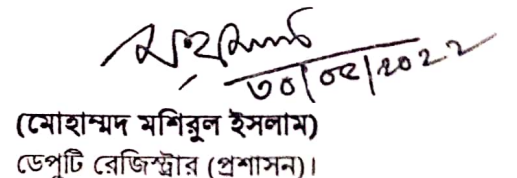 ৩০/০৫/২০২২
(মোহাম্মদ মশিবুল ইসলাম)
ডেপুটি রেজিস্ট্রার (প্রশাসন)।